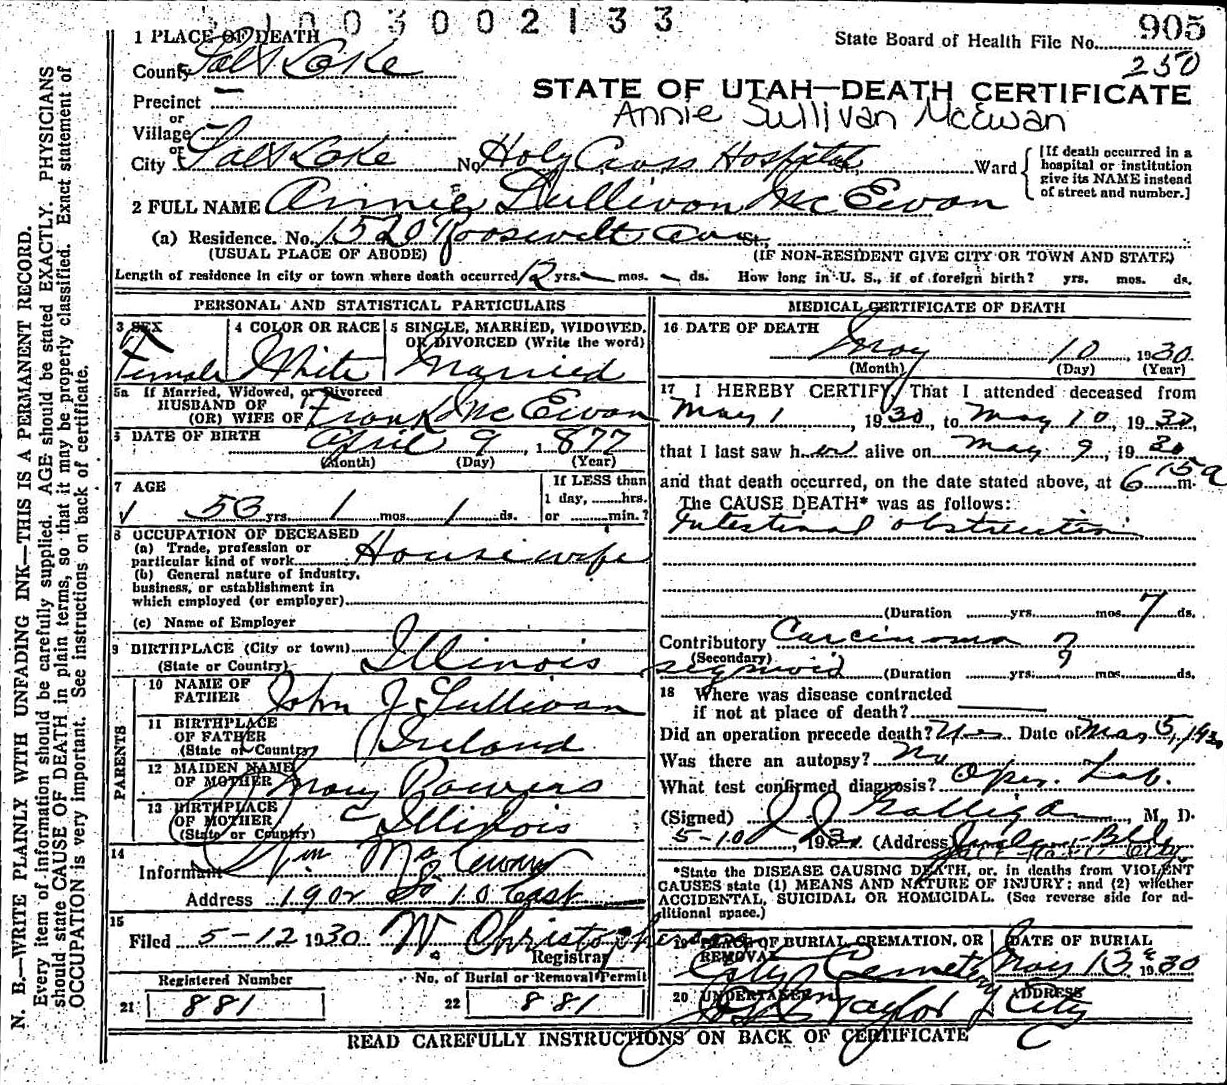 1003002133
905
1 PLACE OF DEATH
State Board of Health File No.
250
County Salt Lake
STATE OF UTAH—DEATH CERTIFICATE
Precinct —
Annie Sullivan McEwan
or
Village —
or
City Salt Lake No. Holy Cross Hospital St., Ward
[If death occurred in a
hospital or institution
give its NAME instead
of street and number.]
2 FULL NAME Annie Sullivan McEwan
(a) Residence. No. 1520 Roosevelt Ave St.,
(USUAL PLACE OF ABODE) (IF NON-RESIDENT GIVE CITY OR TOWN AND STATE)
Length of residence in city or town where death occurred 12 yrs. — mos. — ds. How long in U. S., if of foreign birth? yrs. mos. ds.
PERSONAL AND STATISTICAL PARTICULARS
3 SEX 4 COLOR OR RACE 5 SINGLE, MARRIED, WIDOWED,
OR DIVORCED (Write the word)
Female White Married
5a If Married, Widowed, or Divorced
HUSBAND OF
(OR) WIFE OF Frank McEwan
6 DATE OF BIRTH April 9, 1877
(Month) (Day) (Year)
7 AGE
53 yrs. 1 mos. 1 ds.
If LESS than
1 day, hrs.
or min.?
8 OCCUPATION OF DECEASED
(a) Trade, profession or
particular kind of work Housewife
(b) General nature of industry,
business, or establishment in
which employed (or employer)
(c) Name of Employer
9 BIRTHPLACE (City or town)
(State or Country) Illinois
PARENTS
10 NAME OF
FATHER John J Sullivan
11 BIRTHPLACE
OF FATHER
(State or Country) Ireland
12 MAIDEN NAME
OF MOTHER Mary Powers
13 BIRTHPLACE
OF MOTHER
(State or Country) Illinois
14
Informant Wm McEwan
Address 1902 So 10 East
15
Filed 5-12 1930 W. Christopherson
Registrar
Registered Number No. of Burial or Removal Permit
21 881 22 881
MEDICAL CERTIFICATE OF DEATH
16 DATE OF DEATH
May 10 1930
(Month) (Day) (Year)
17 I HEREBY CERTIFY, That I attended deceased from
May 1, 1930, to May 10, 1930,
that I last saw her alive on May 9, 1930
and that death occurred, on the date stated above, at 6 15a m.
The CAUSE DEATH* was as follows:
Intestinal obstruction
(Duration yrs. mos. 7 ds.
Contributory Carcinoma of
(Secondary)
sigmoid (Duration yrs. ? mos. ds.
18 Where was disease contracted
if not at place of death?
Did an operation precede death? Yes Date of May 5, 1930
Was there an autopsy? No
What test confirmed diagnosis? Oper. Lab.
(Signed) J J Galligan, M. D.
5-10, 1930 (Address Judge Bldg
Salt Lake City
*State the DISEASE CAUSING DEATH, or, in deaths from VIOLENT
CAUSES state (1) MEANS AND NATURE OF INJURY; and (2) whether
ACCIDENTAL, SUICIDAL OR HOMICIDAL. (See reverse side for ad-
ditional space.)
19 PLACE OF BURIAL, CREMATION, OR
REMOVAL
City Cemetery
DATE OF BURIAL
May 13 1930
20 UNDERTAKER
Taylor
ADDRESS
City
READ CAREFULLY INSTRUCTIONS ON BACK OF CERTIFICATE
N. B.—WRITE PLAINLY WITH UNFADING INK—THIS IS A PERMANENT RECORD.
Every item of information should be carefully supplied. AGE should be stated EXACTLY. PHYSICIANS
should state CAUSE OF DEATH in plain terms, so that it may be properly classified. Exact statement of
OCCUPATION is very important. See instructions on back of certificate.